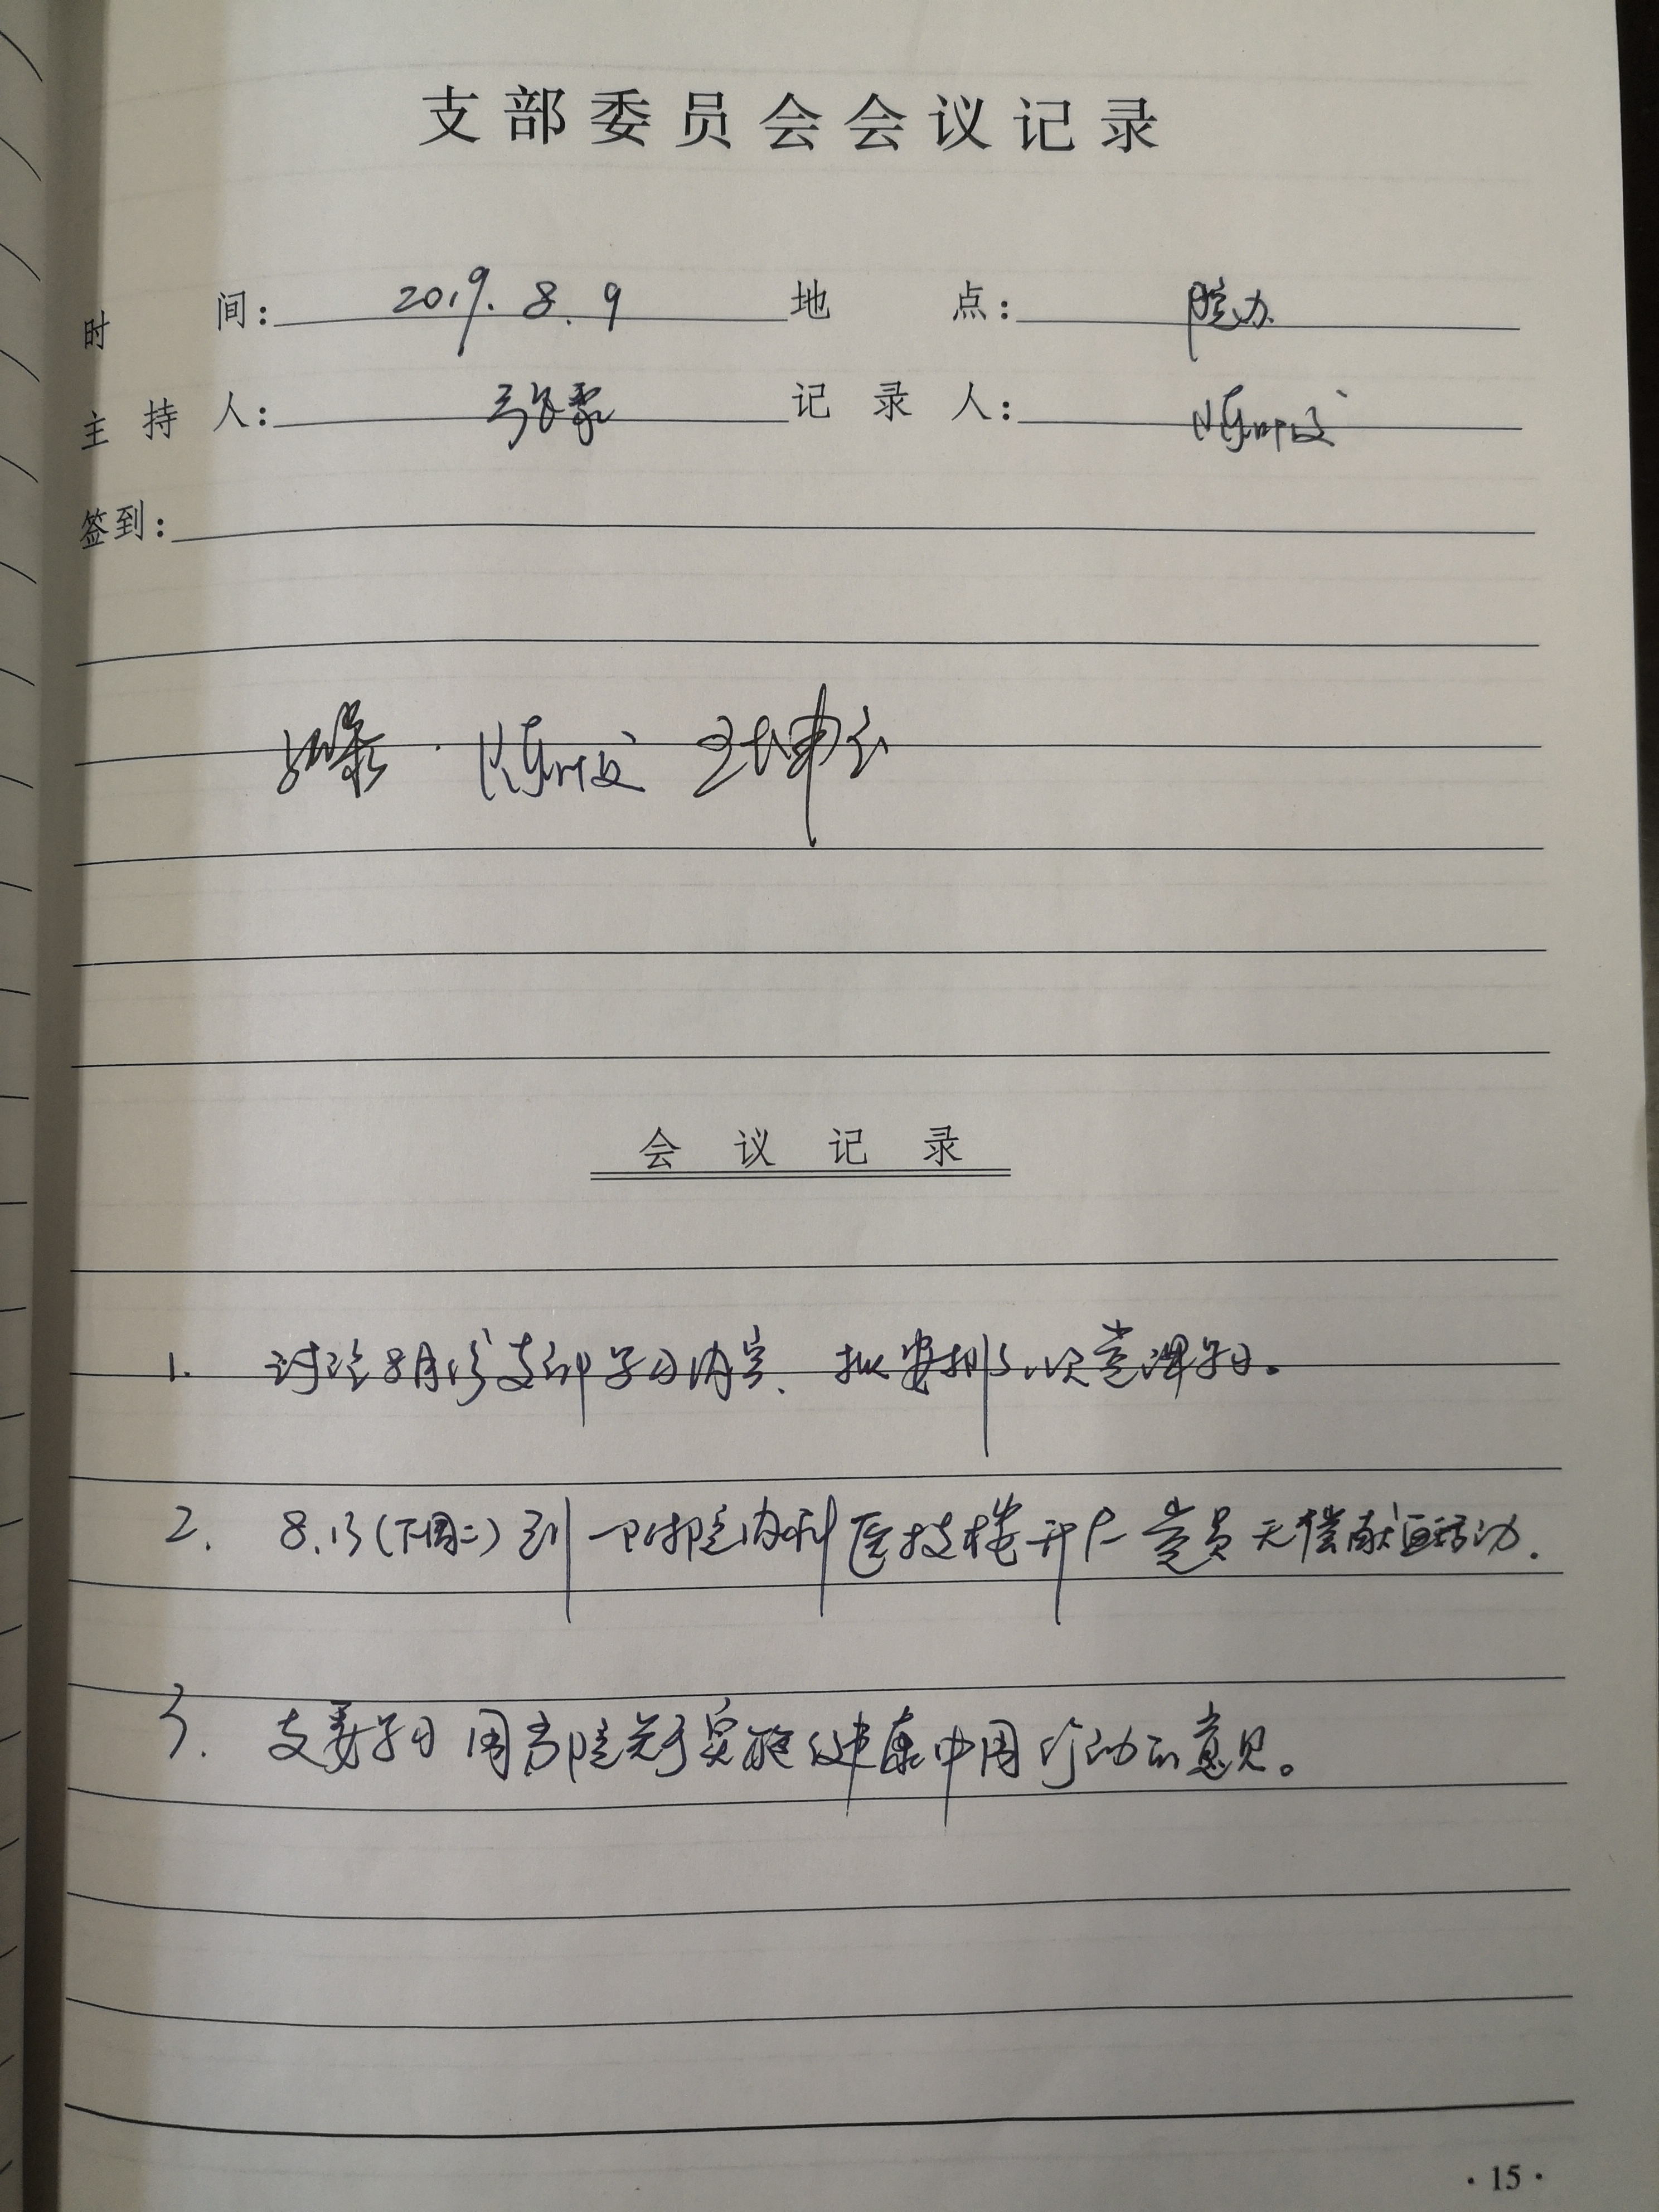 支部委员会会议记录
时间：2019.8.9 地点：院办
主持人： 记录人：陈
签到：
陈 王坤
会议记录
1. 讨论8月份支部学习内容、拟安排一次党课学习。
2. 8.13(下周二)到一附院内科医技楼开展党员无偿献血活动.
3. 支委学习国务院关于实施健康中国行动的意见。
·15·